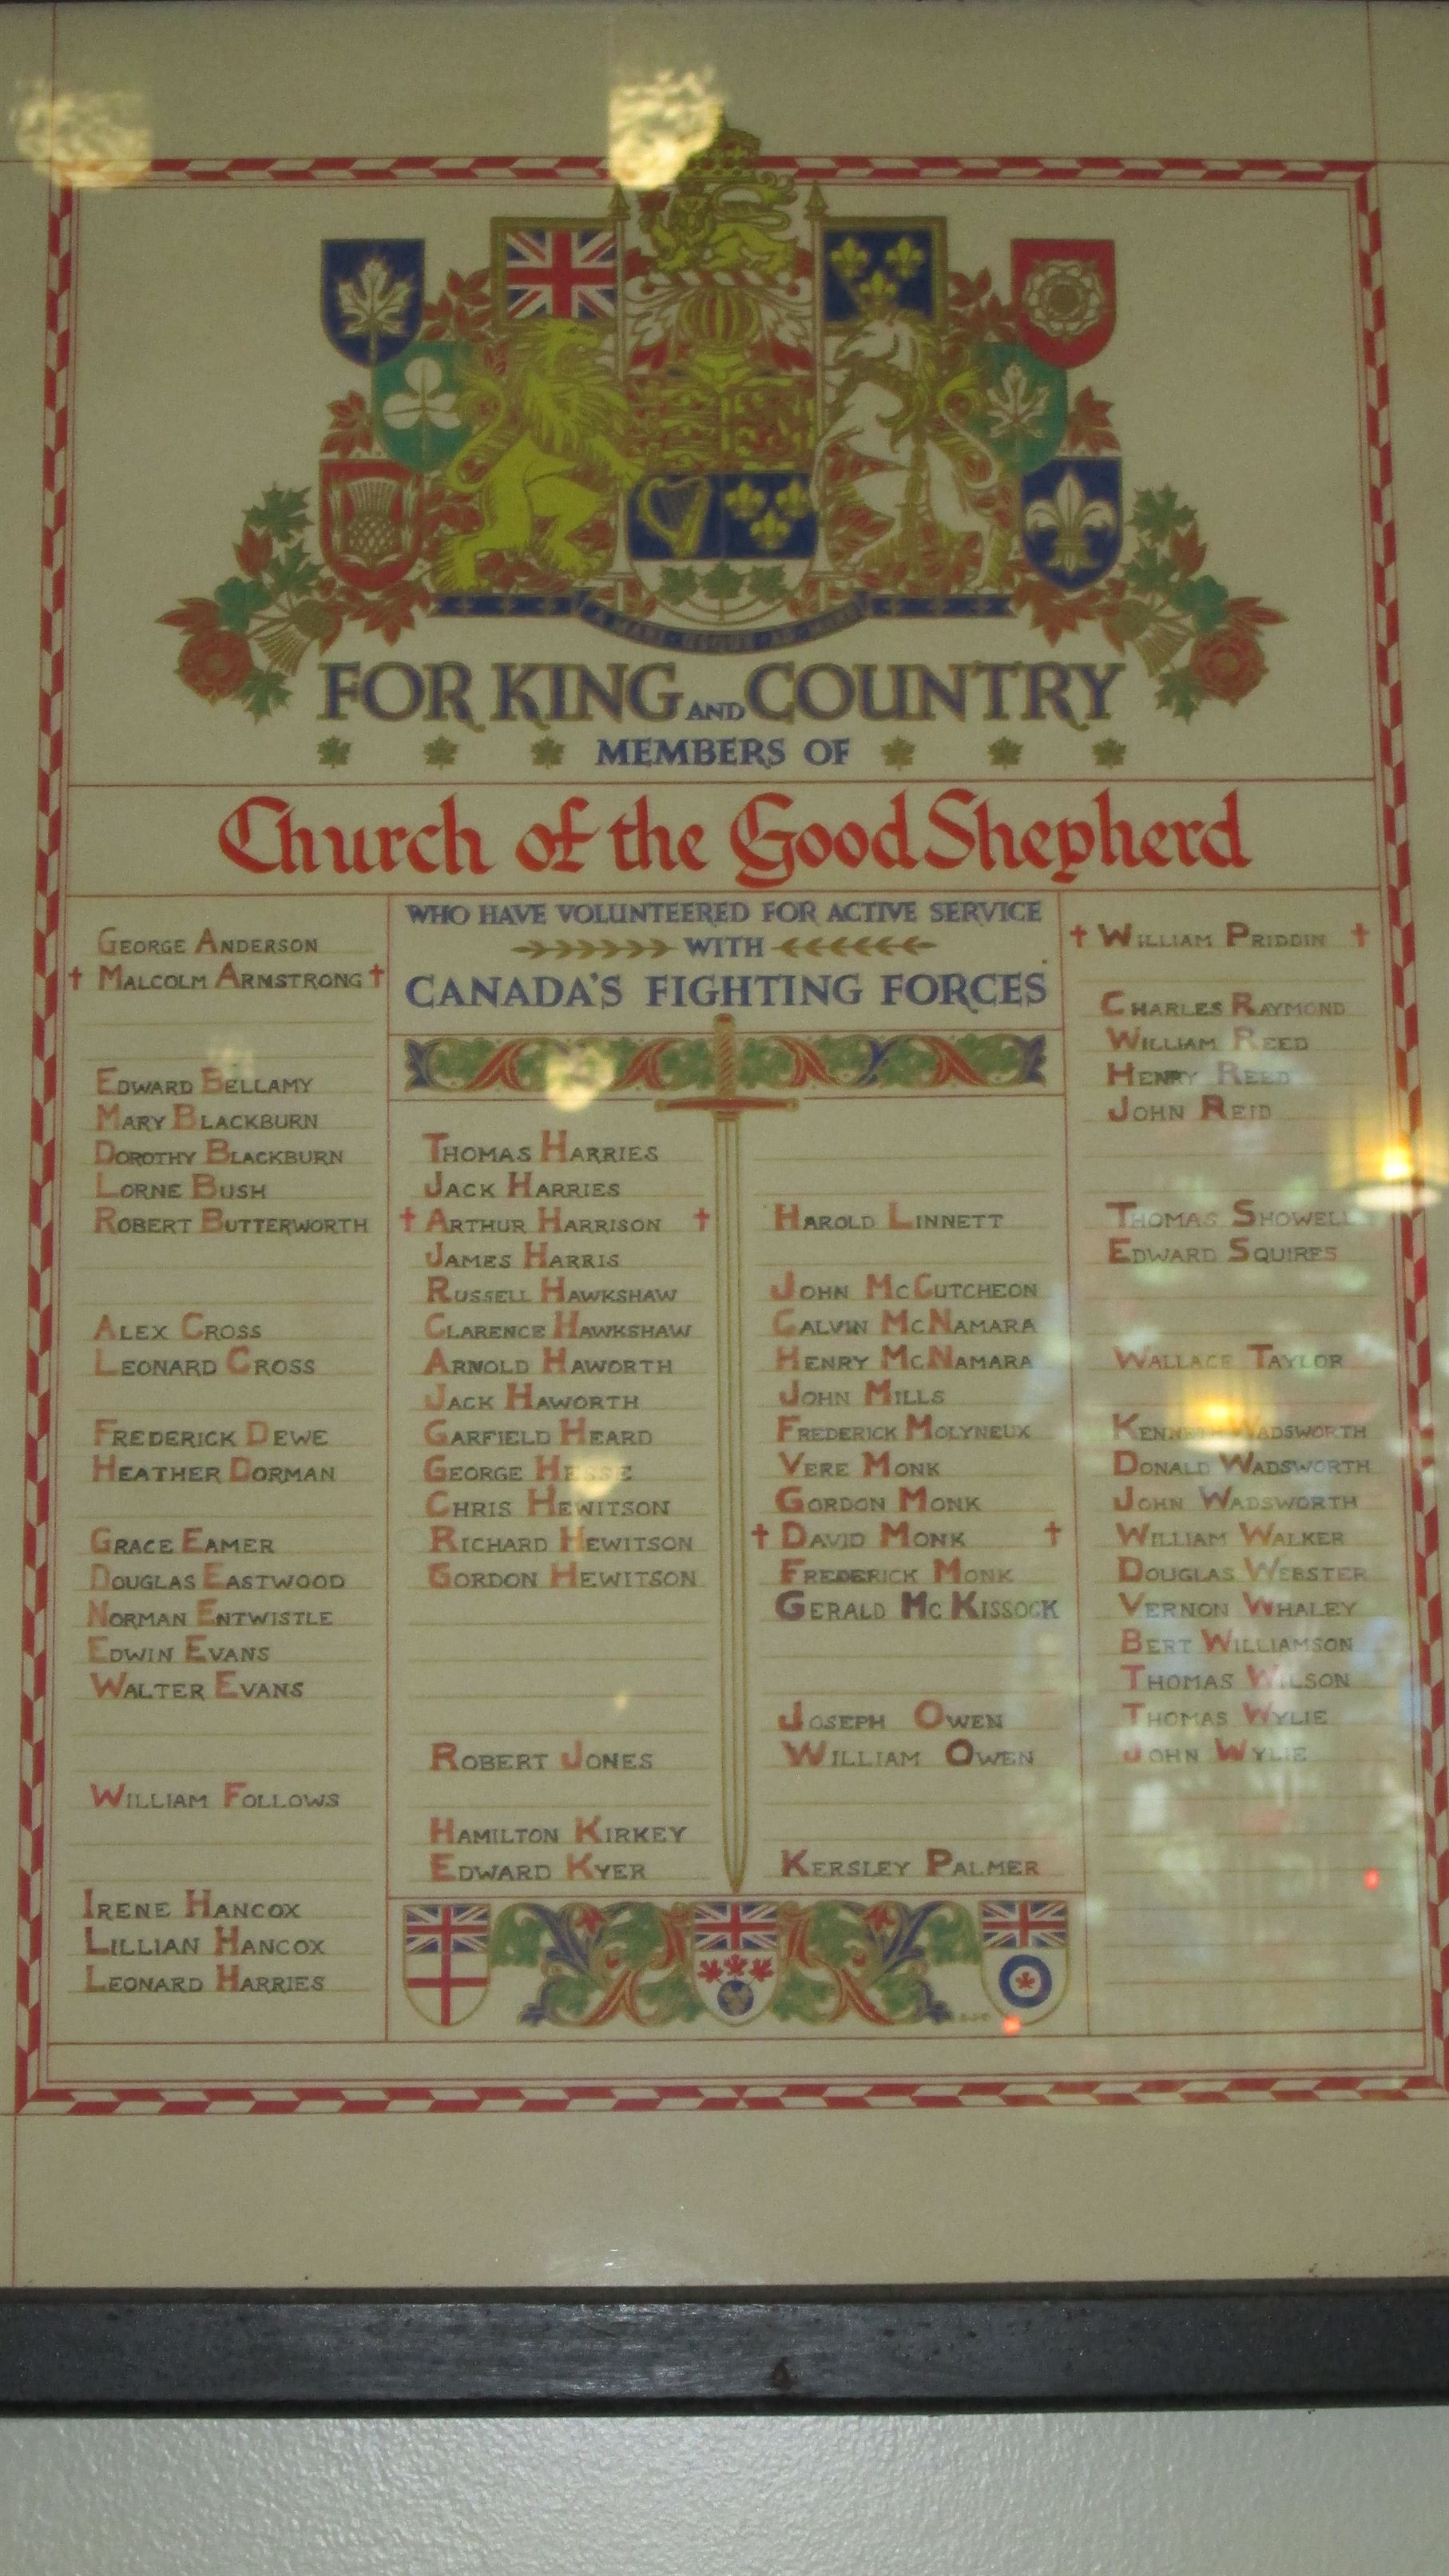 A MARI USQUE AD MARE
FOR KING AND COUNTRY
MEMBERS OF
Church of the Good Shepherd
WHO HAVE VOLUNTEERED FOR ACTIVE SERVICE
WITH
CANADA'S FIGHTING FORCES
GEORGE ANDERSON
† MALCOLM ARMSTRONG †
EDWARD BELLAMY
MARY BLACKBURN
DOROTHY BLACKBURN
LORNE BUSH
ROBERT BUTTERWORTH
ALEX CROSS
LEONARD CROSS
FREDERICK DEWE
HEATHER DORMAN
GRACE EAMER
DOUGLAS EASTWOOD
NORMAN ENTWISTLE
EDWIN EVANS
WALTER EVANS
WILLIAM FOLLOWS
IRENE HANCOX
LILLIAN HANCOX
LEONARD HARRIES
THOMAS HARRIES
JACK HARRIES
† ARTHUR HARRISON †
JAMES HARRIS
RUSSELL HAWKSHAW
CLARENCE HAWKSHAW
ARNOLD HAWORTH
JACK HAWORTH
GARFIELD HEARD
GEORGE HESSE
CHRIS HEWITSON
RICHARD HEWITSON
GORDON HEWITSON
ROBERT JONES
HAMILTON KIRKEY
EDWARD KYER
HAROLD LINNETT
JOHN McCUTCHEON
CALVIN McNAMARA
HENRY McNAMARA
JOHN MILLS
FREDERICK MOLYNEUX
VERE MONK
GORDON MONK
† DAVID MONK †
FREDERICK MONK
GERALD McKISSOCK
JOSEPH OWEN
WILLIAM OWEN
KERSLEY PALMER
† WILLIAM PRIDDIN †
CHARLES RAYMOND
WILLIAM REED
HENRY REED
JOHN REID
THOMAS SHOWELL
EDWARD SQUIRES
WALLACE TAYLOR
KENNETH WADSWORTH
DONALD WADSWORTH
JOHN WADSWORTH
WILLIAM WALKER
DOUGLAS WEBSTER
VERNON WHALEY
BERT WILLIAMSON
THOMAS WILSON
THOMAS WYLIE
JOHN WYLIE